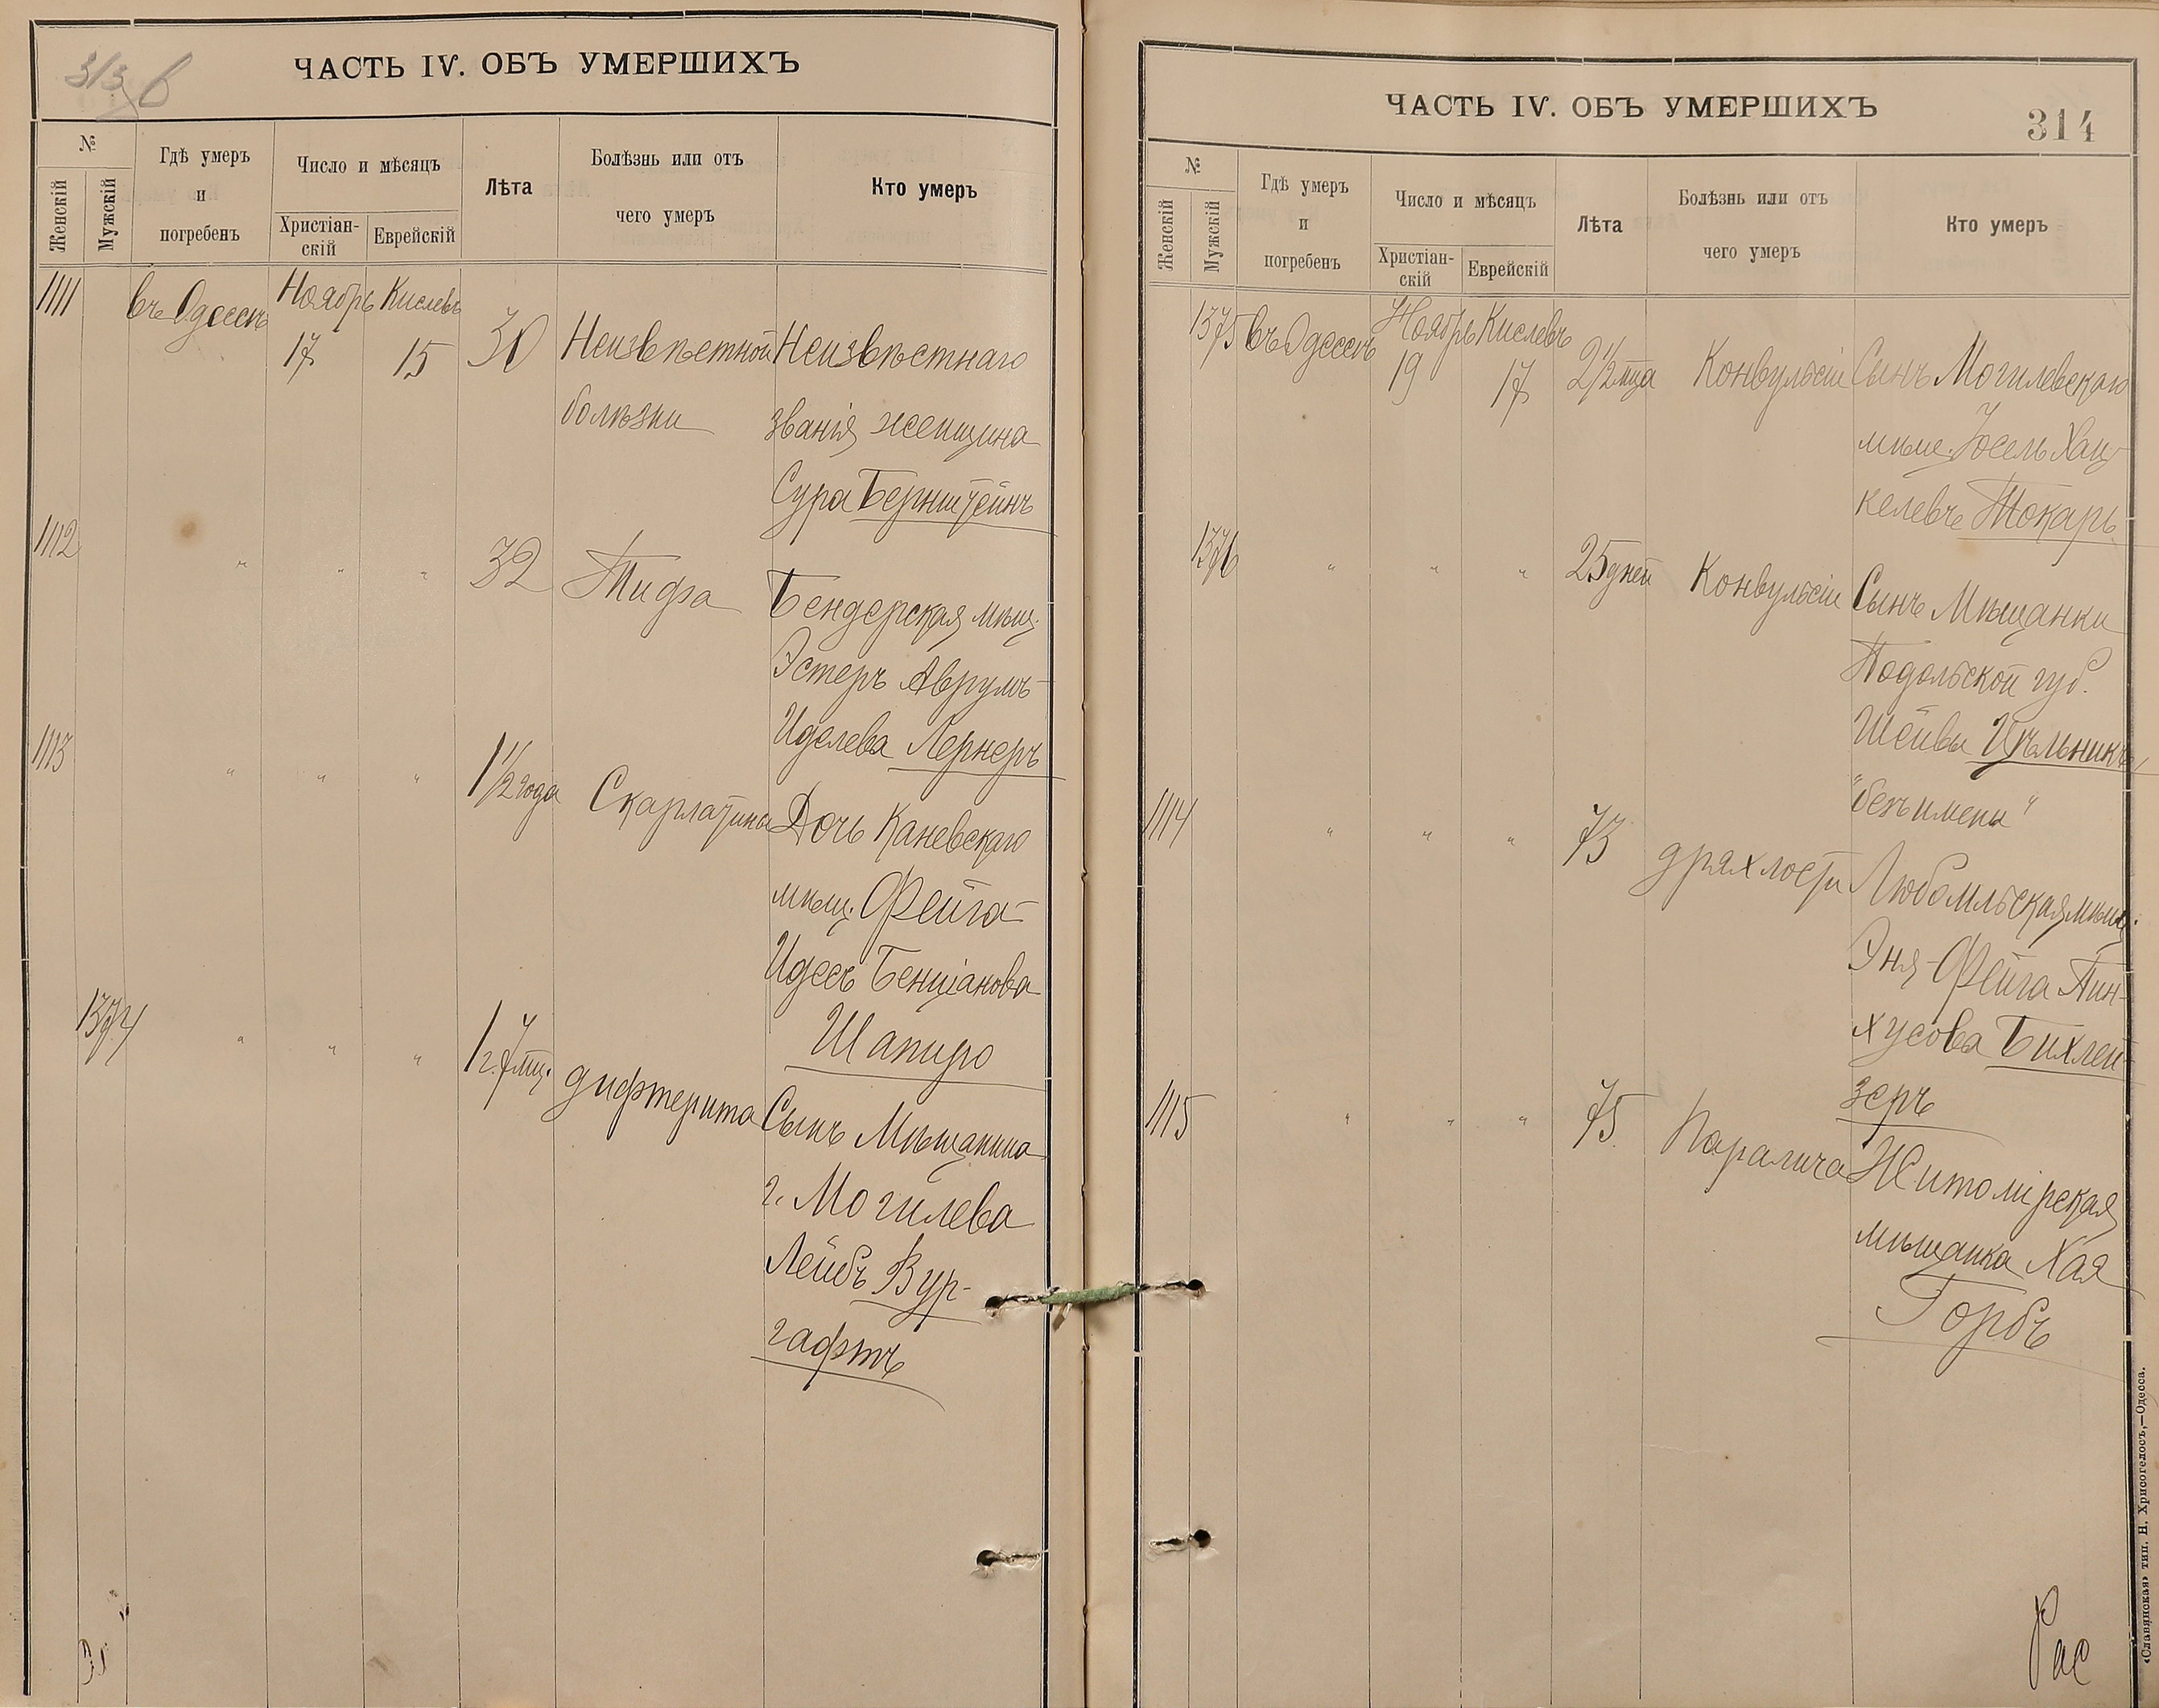 313 в
ЧАСТЬ IV. ОБЪ УМЕРШИХЪ
№
Женскій
Мужскій
Гдѣ умеръ
и
погребенъ
Число и мѣсяцъ
Христіан-
скій
Еврейскій
Лѣта
Болѣзнь или отъ
чего умеръ
Кто умеръ
1111 въ Одессѣ Ноябрь Кислевъ
17 15 30 Неизвѣстной Неизвѣстнаго
болѣзни званія женщина
Сура Бернштейнъ
1112 " " " 32 Тифа Бендерская мѣщ.
Эстеръ Аврумъ-
Иделева Лернеръ
1113 " " " 1 1/2 года Скарлатина Дочь Каневскаго
мѣщ. Фейга-
Идесъ Бенціанова
Шапиро
1374 " " " 1 г. 7 мц. дифтерита Сынъ Мѣщанина
г. Могилева
Лейбъ Вур-
гафтъ
ЧАСТЬ IV. ОБЪ УМЕРШИХЪ
314
№
Женскій
Мужскій
Гдѣ умеръ
и
погребенъ
Число и мѣсяцъ
Христіан-
скій
Еврейскій
Лѣта
Болѣзнь или отъ
чего умеръ
Кто умеръ
1375 въ Одессѣ Ноябрь Кислевъ
19 17 2 1/2 мца Конвульсіи Сынъ Могилевскаго
мѣщ. Іосель Хац-
келевъ Токарь
1376 " " " 25 дней Конвульсіи Сынъ Мѣщанки
Подольской губ.
Шейвы
"безъ имени"
1114 " " " 73 дряхлости Любомльская мѣщ.
Эня-Фейга Пин-
хусова Бихлей-
зеръ
1115 " " " 75 Паралича Житомірская
мѣщанка Хая
Горбъ
Рас
«Славянская» тип. Н. Хрисогелосъ,—Одесса.